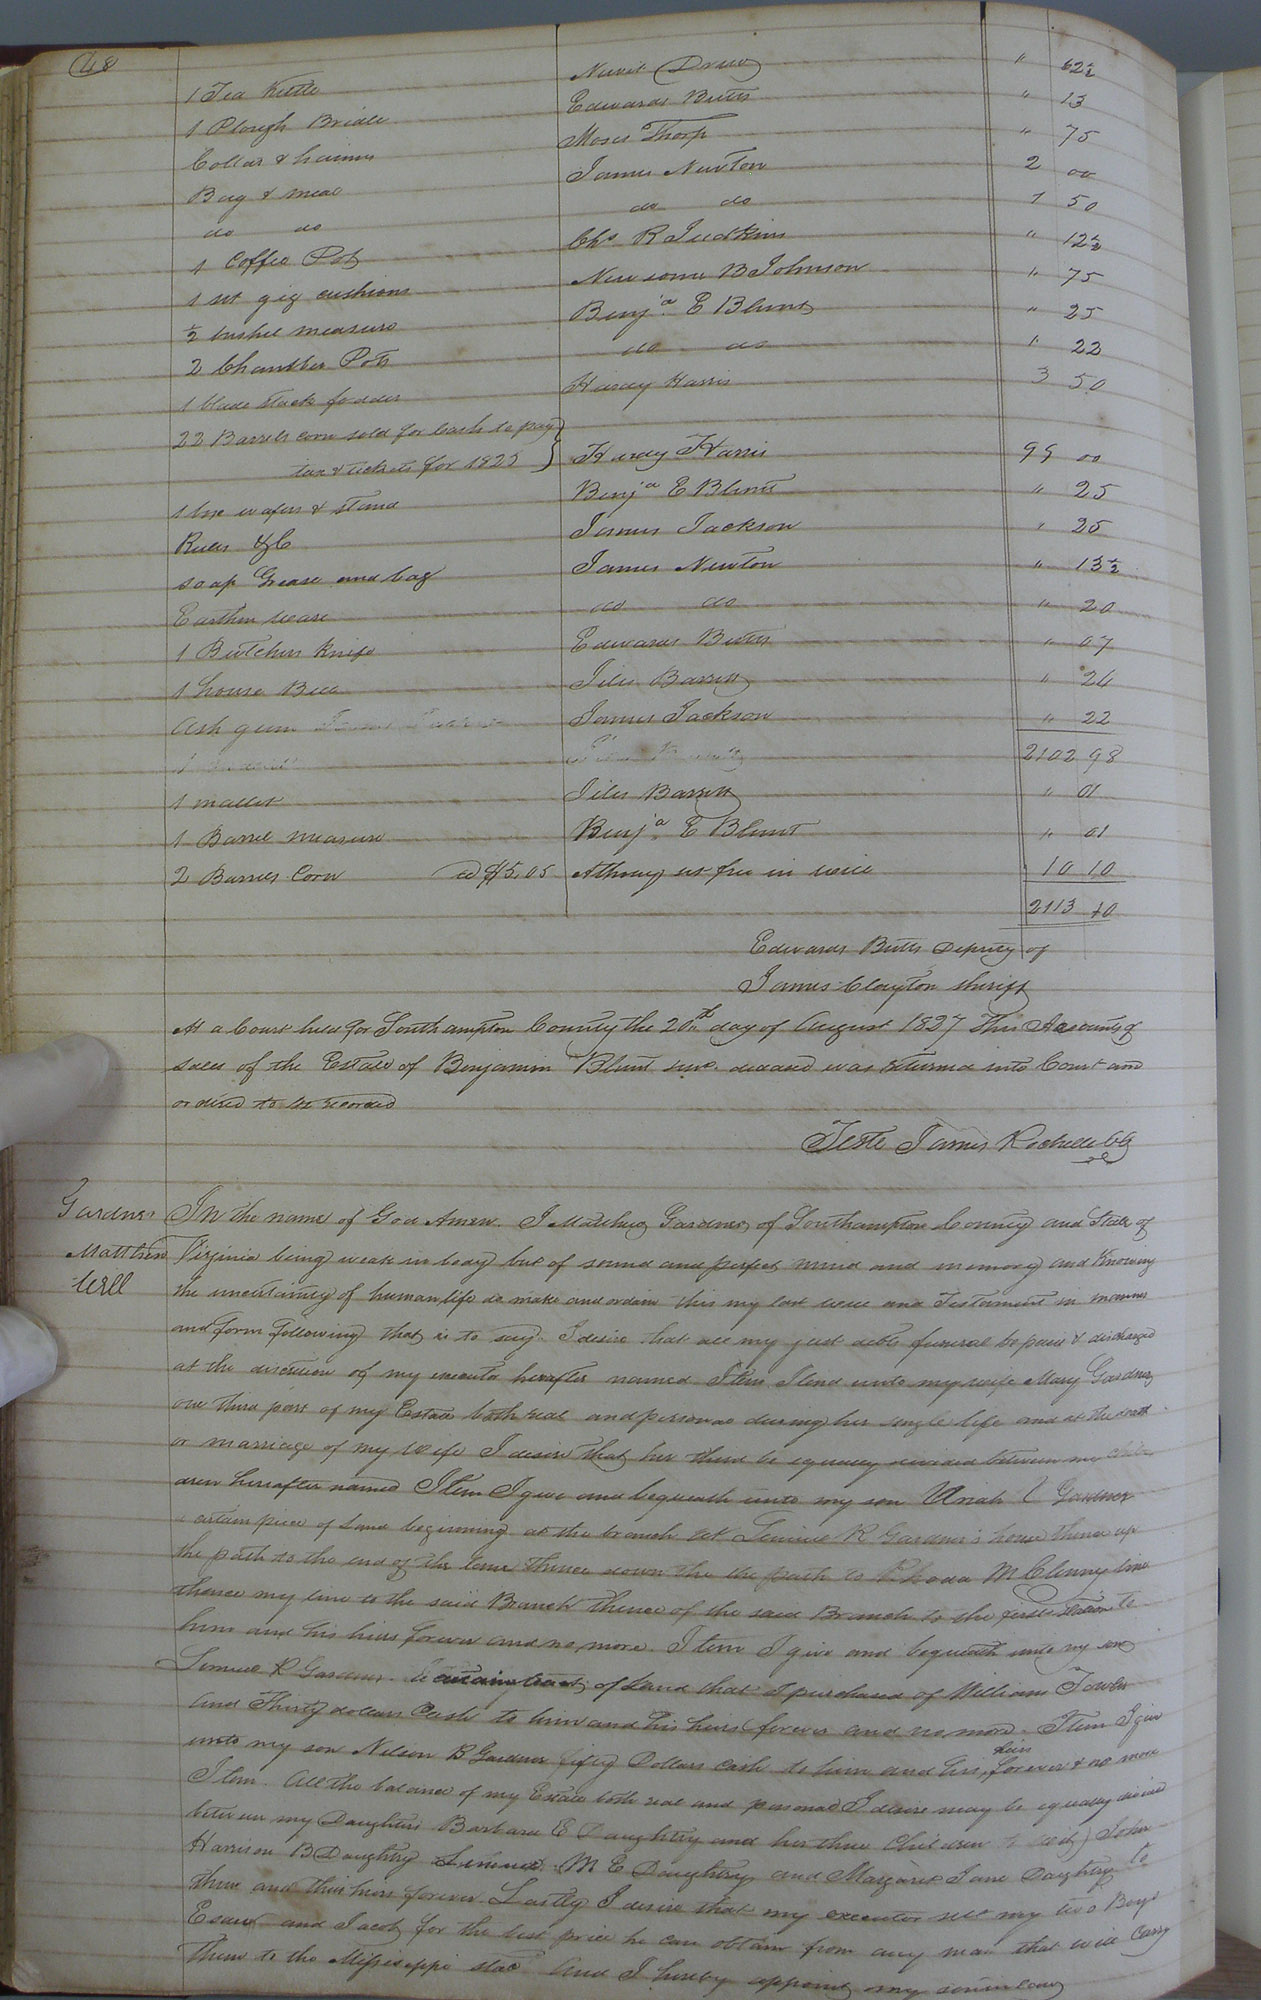 48
1 Tea Kettle Newit Drew " 62½
1 Plough Bridle Edwards Butts " 13
Collar & haims Moses Thorp " 75
Bag & meal James Newton 2 00
do do do do 1 50
1 Coffee Pot Chs R Judkins " 12½
1 set gig cushions Newsome B Johnson " 75
½ bushel measure Benja E Blunt " 25
2 Chamber Pots do do " 22
1 blade stack fodder Harry Harris 3 50
22 Barrels corn sold for Cash to pay
tax & tickets for 1825 } Harry Harris 99 00
1 box wafers & stand Benja E Blunt " 25
&C James Jackson " 25
soap Grease and bag James Newton " 13½
Earthen ware do do " 20
1 Butchers Knife Edwards Butts " 07
1 house Bell Jiles Barrett " 26
Ash gum James Jackson " 22
2102 98
1 mallet Jiles Barrett " 01
1 Barrel measure Benja E Blunt " 01
2 Barrels Corn @ $5.05 10 10
2113 10
Edwards Butts Deputy of
James Clayton Sheriff
At a Court held for Southampton County the 20th day of August 1827 This Accounts of
sales of the Estate of Benjamin Blunt senr. deceased was returned into Court and
ordered to be recorded
Teste James Rochelle CC
Gardner
Matthew
Will
In the name of God Amen. I Matthew Gardner of Southampton County and State of
Virginia being weak in body but of sound and perfect mind and memory and Knowing
the uncertainty of human life do make and ordain this my last will and Testament in manner
and form following that is to say. I desire that all my just debts funeral be paid & discharged
at the discretion of my executor hereafter named Item I lend unto my wife Mary Gardner
one third part of my Estate both real and personal during her single life and at the death
or marriage of my wife I desire that her third be equally divided between my chil
dren hereafter named Item I give and bequeath unto my son Uriah Gardner
a certain piece of Land beginning at the branch at Lemuel R Gardner's house thence up
the path to the end of the lane thence down the the path to Rhoda McClenny line
thence my line to the said Branch thence of the said Branch to the first station to
him and his heirs forever and no more. Item I give and bequeath unto my son
Lemuel R Gardner. a certain tract of Land that I purchased of William Fowler
And Thirty dollars Cash to him and his heirs forever and no more. Item I give
unto my son Nelson B Gardner fifty Dollars cash to him and his heirs forever & no more
Item. All the balance of my Estate both real and personal I desire may be equally divided
between my Daughters Barbara E Daughtry and her three Children to (wit) John
Harrison B Daughtry Lemuel M E Daughtry and Margaret Jane Daughtry to
them and their heirs forever. Lastly I desire that my executor sell my two Boys
Esau and Jacob for the best price he can obtain from any man that will Carry
them to the Mississeppi state And I hereby appoint my